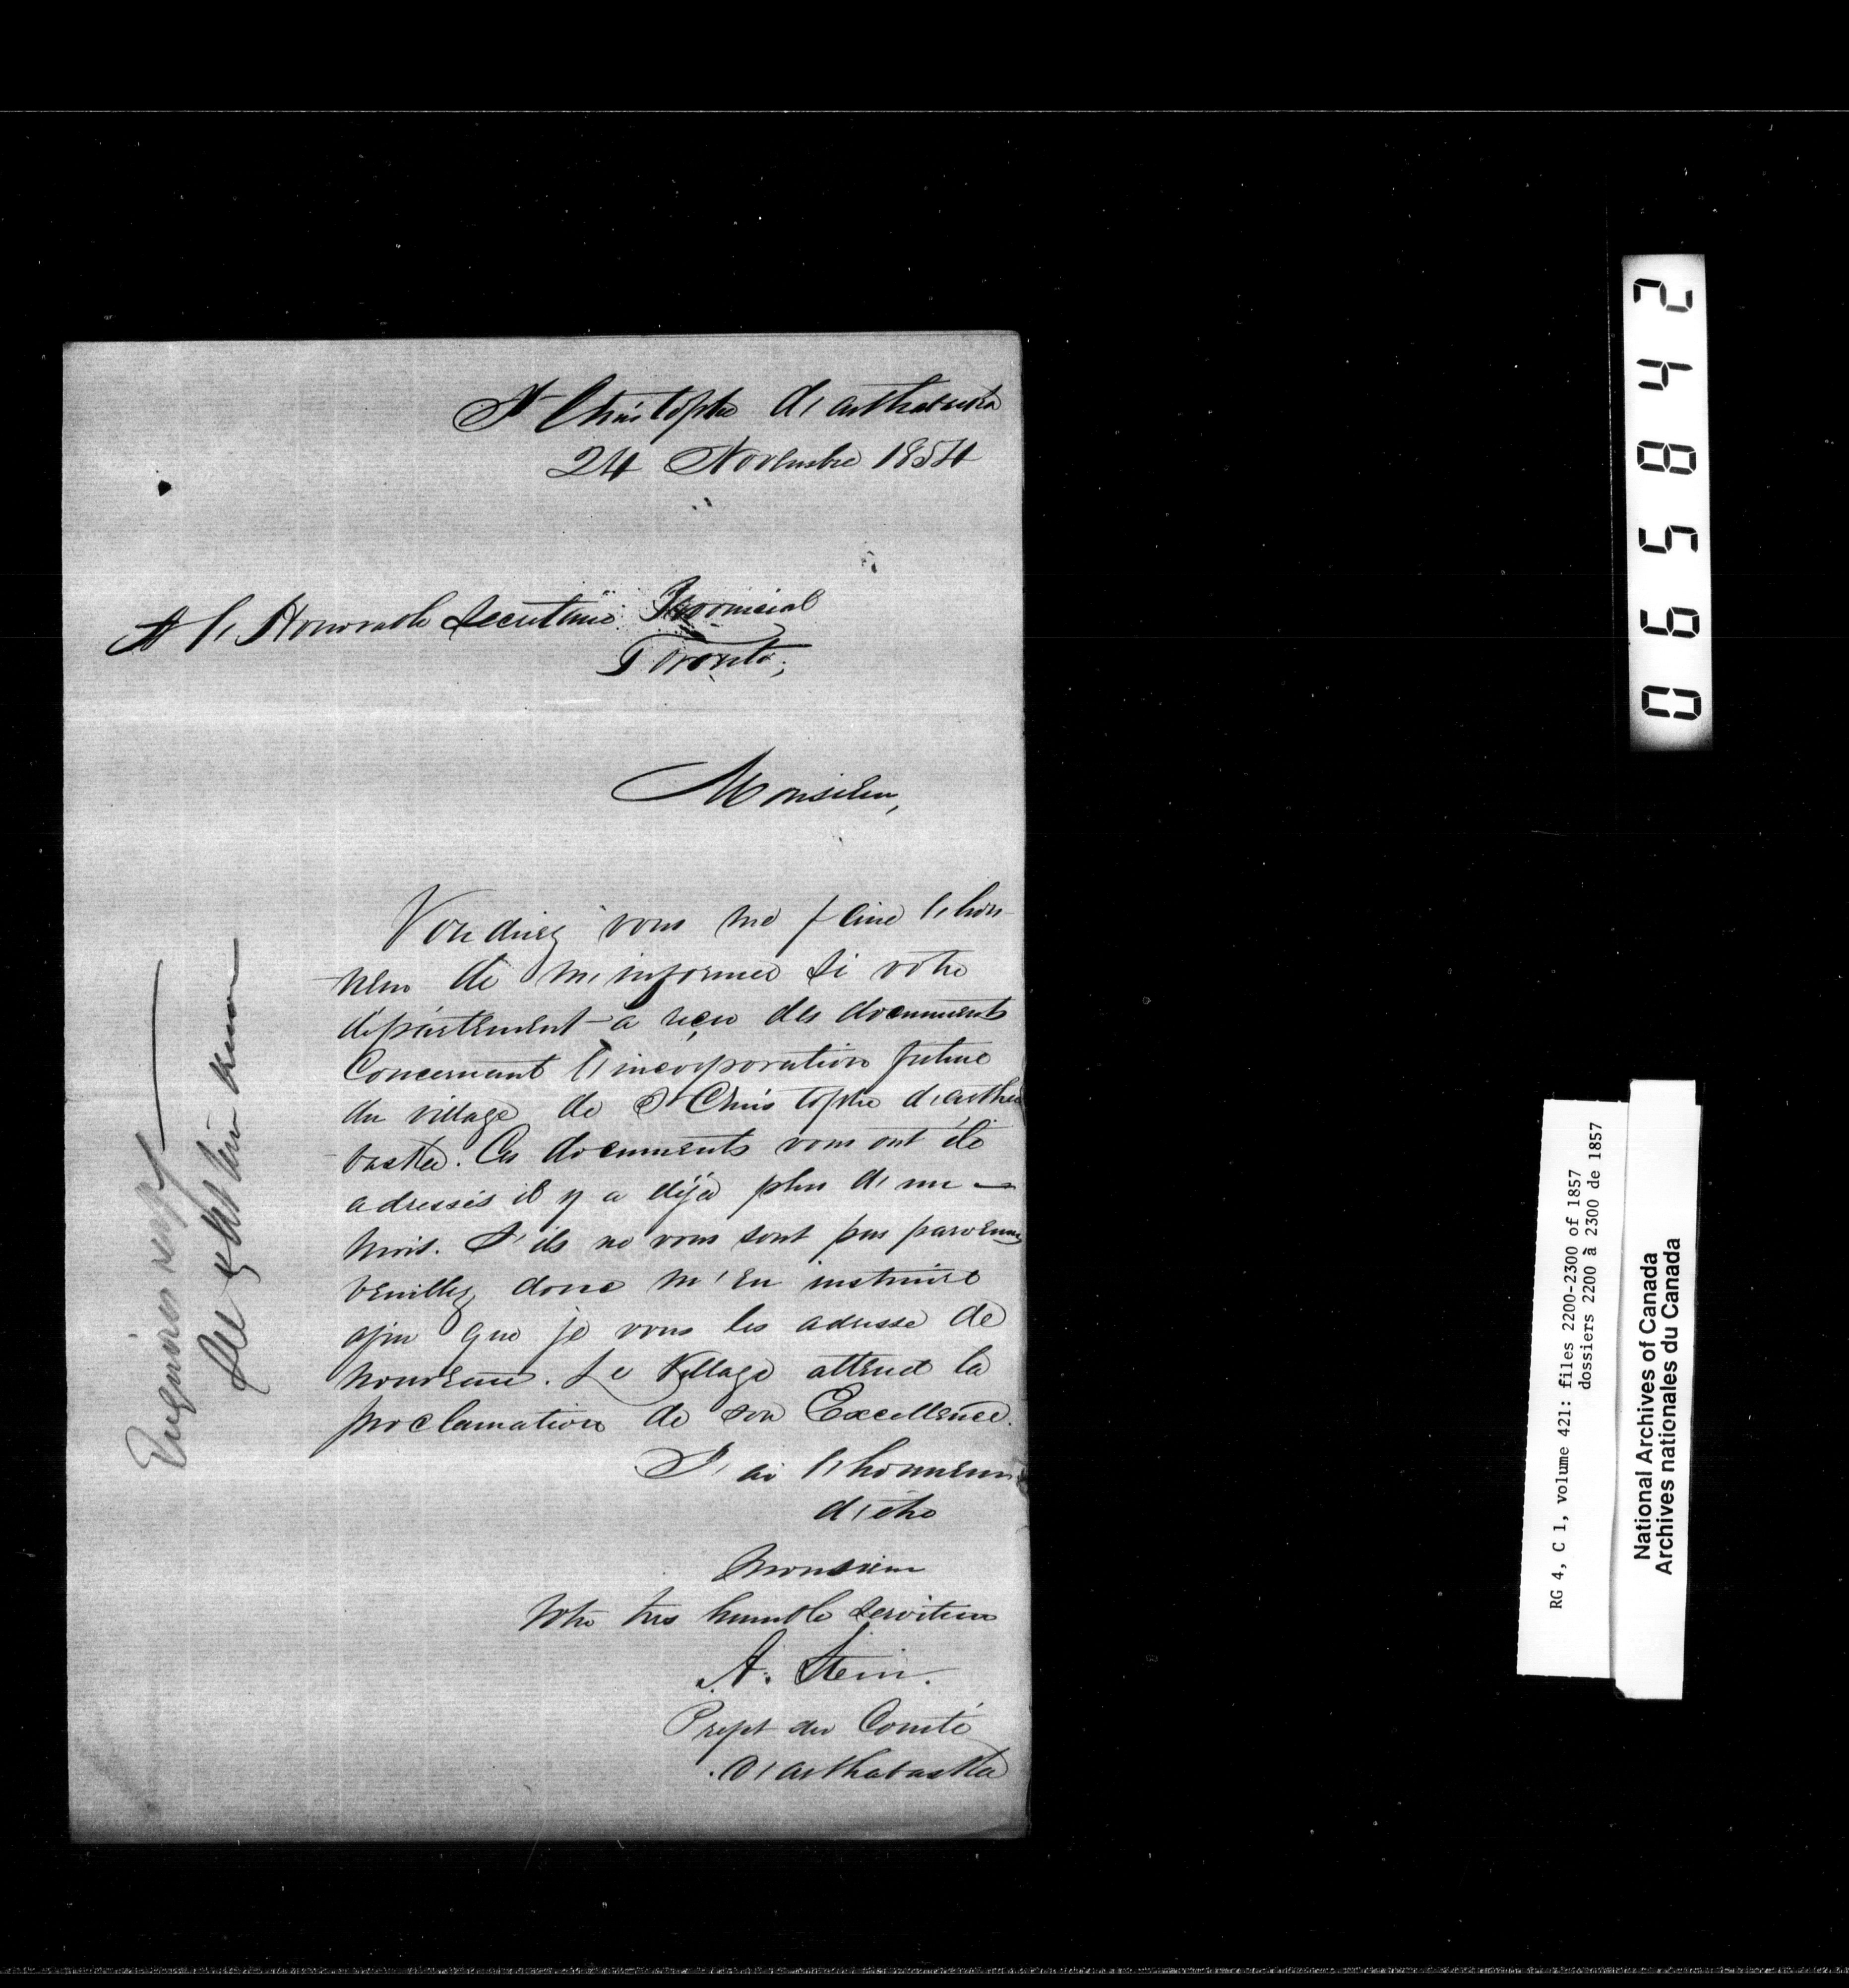 St Christophe d'arthabaska
24 Novembre 1857
A l'Honorable Secretaire Provincial
Toronto,
Monsieur,
Voudriez vous me faire l'hon-
neur de m'informer si votre
département a reçu des documents
Concernant l'incorporation future
du village de St Christophe d'artha
baska. Ces documents vous ont été
adressés il y a déjà plus d'un
mois. S'ils ne vous sont pas parvenus
veuillez donc m'en instruire
afin que je vous les adresse de
nouveau. Le Village attend la
proclamation de son Excellence.
J'ai l'honneur
d'être
Monsieur
Votre très humble Serviteur
A. Stein.
Prefet du Comté
d'arthabaska
065842
RG 4, C 1, volume 421: files 2200-2300 of 1857
dossiers 2200 à 2300 de 1857
National Archives of Canada
Archives nationales du Canada